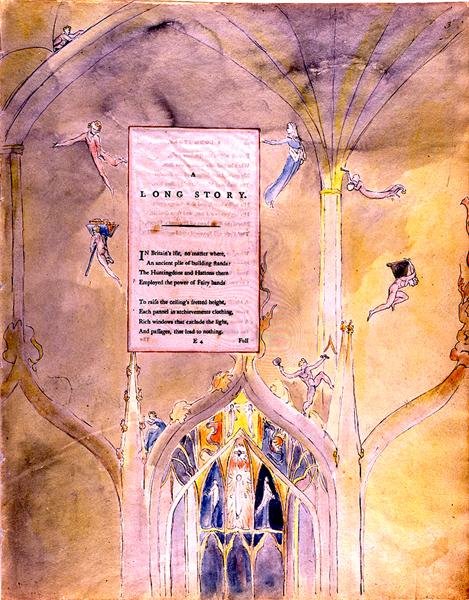 A
LONG STORY.
IN Britain's isle, no matter where,
An ancient pile of building stands:
The Huntingdons and Hattons there
Employed the power of Fairy hands
To raise the ceiling's fretted height,
Each pannel in atchievements clothing,
Rich windows that exclude the light,
And passages, that lead to nothing.
E 4 Full